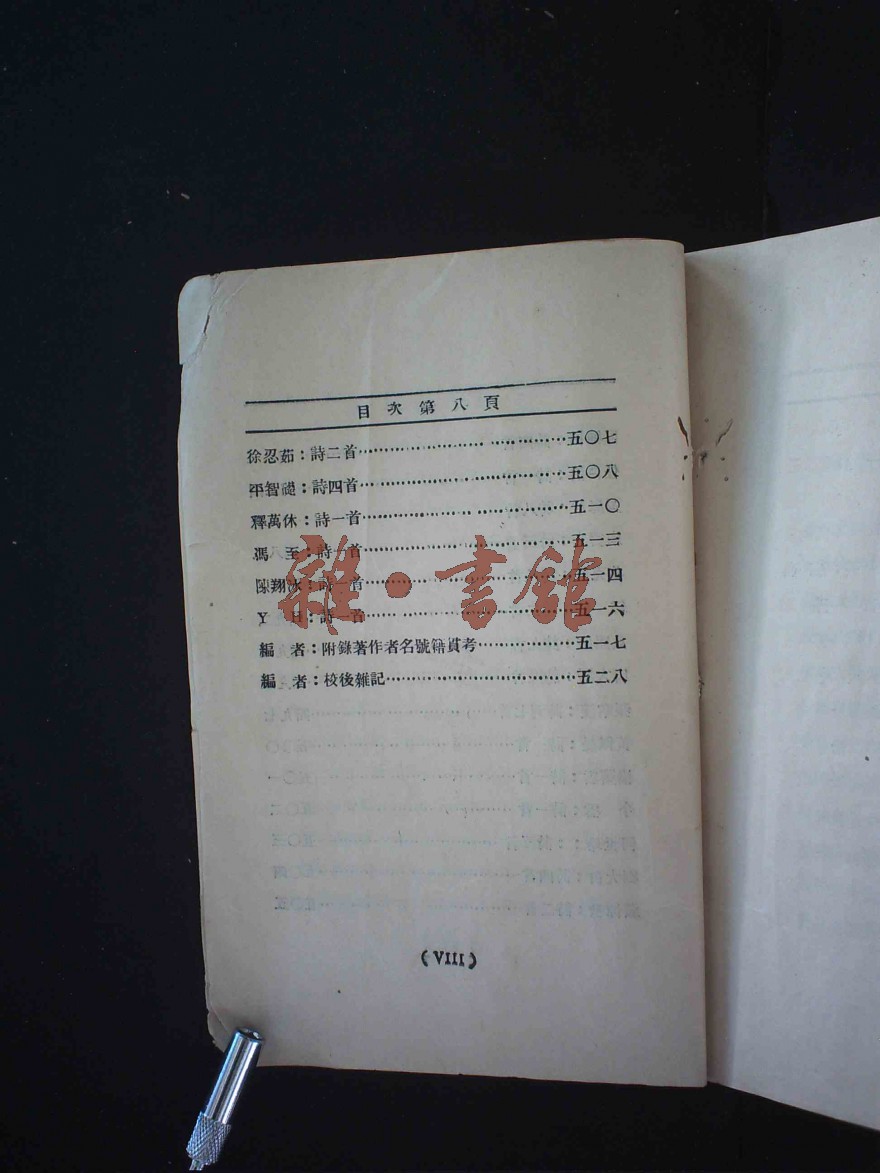 目次第八頁
徐忍茹：詩二首…………………………五〇七
平智礎：詩四首…………………………五〇八
釋萬休：詩一首…………………………五一〇
馮　至：詩一首…………………………五一三
陳翔冰：詩一首…………………………五一四
Y　日：詩一首…………………………五一六
編　者：附錄著作者名號籍貫考…………五一七
編　者：校後雜記…………………………五二八
(VIII)
雜·書館